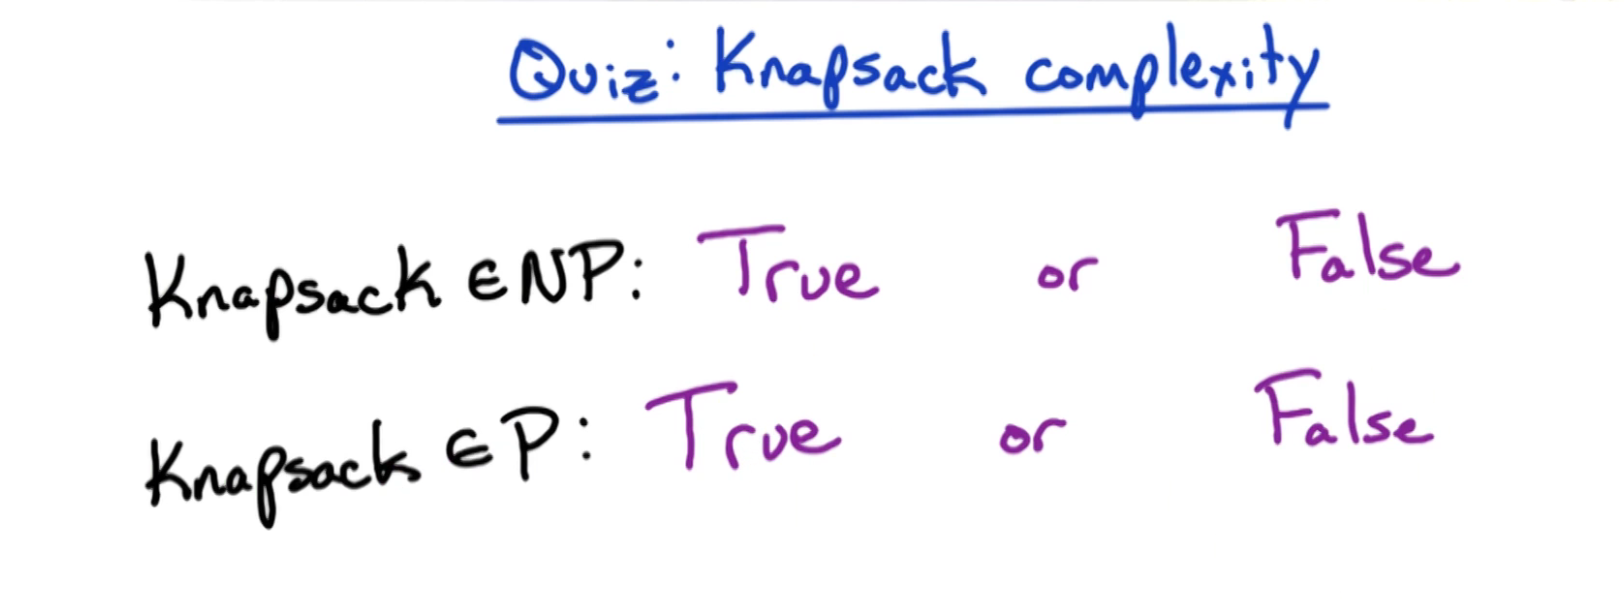 Quiz: Knapsack complexity
Knapsack ∈ NP: True or False
Knapsack ∈ P: True or False